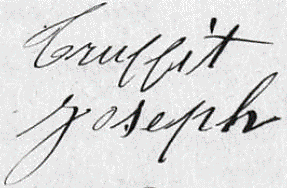 Truffit
Joseph